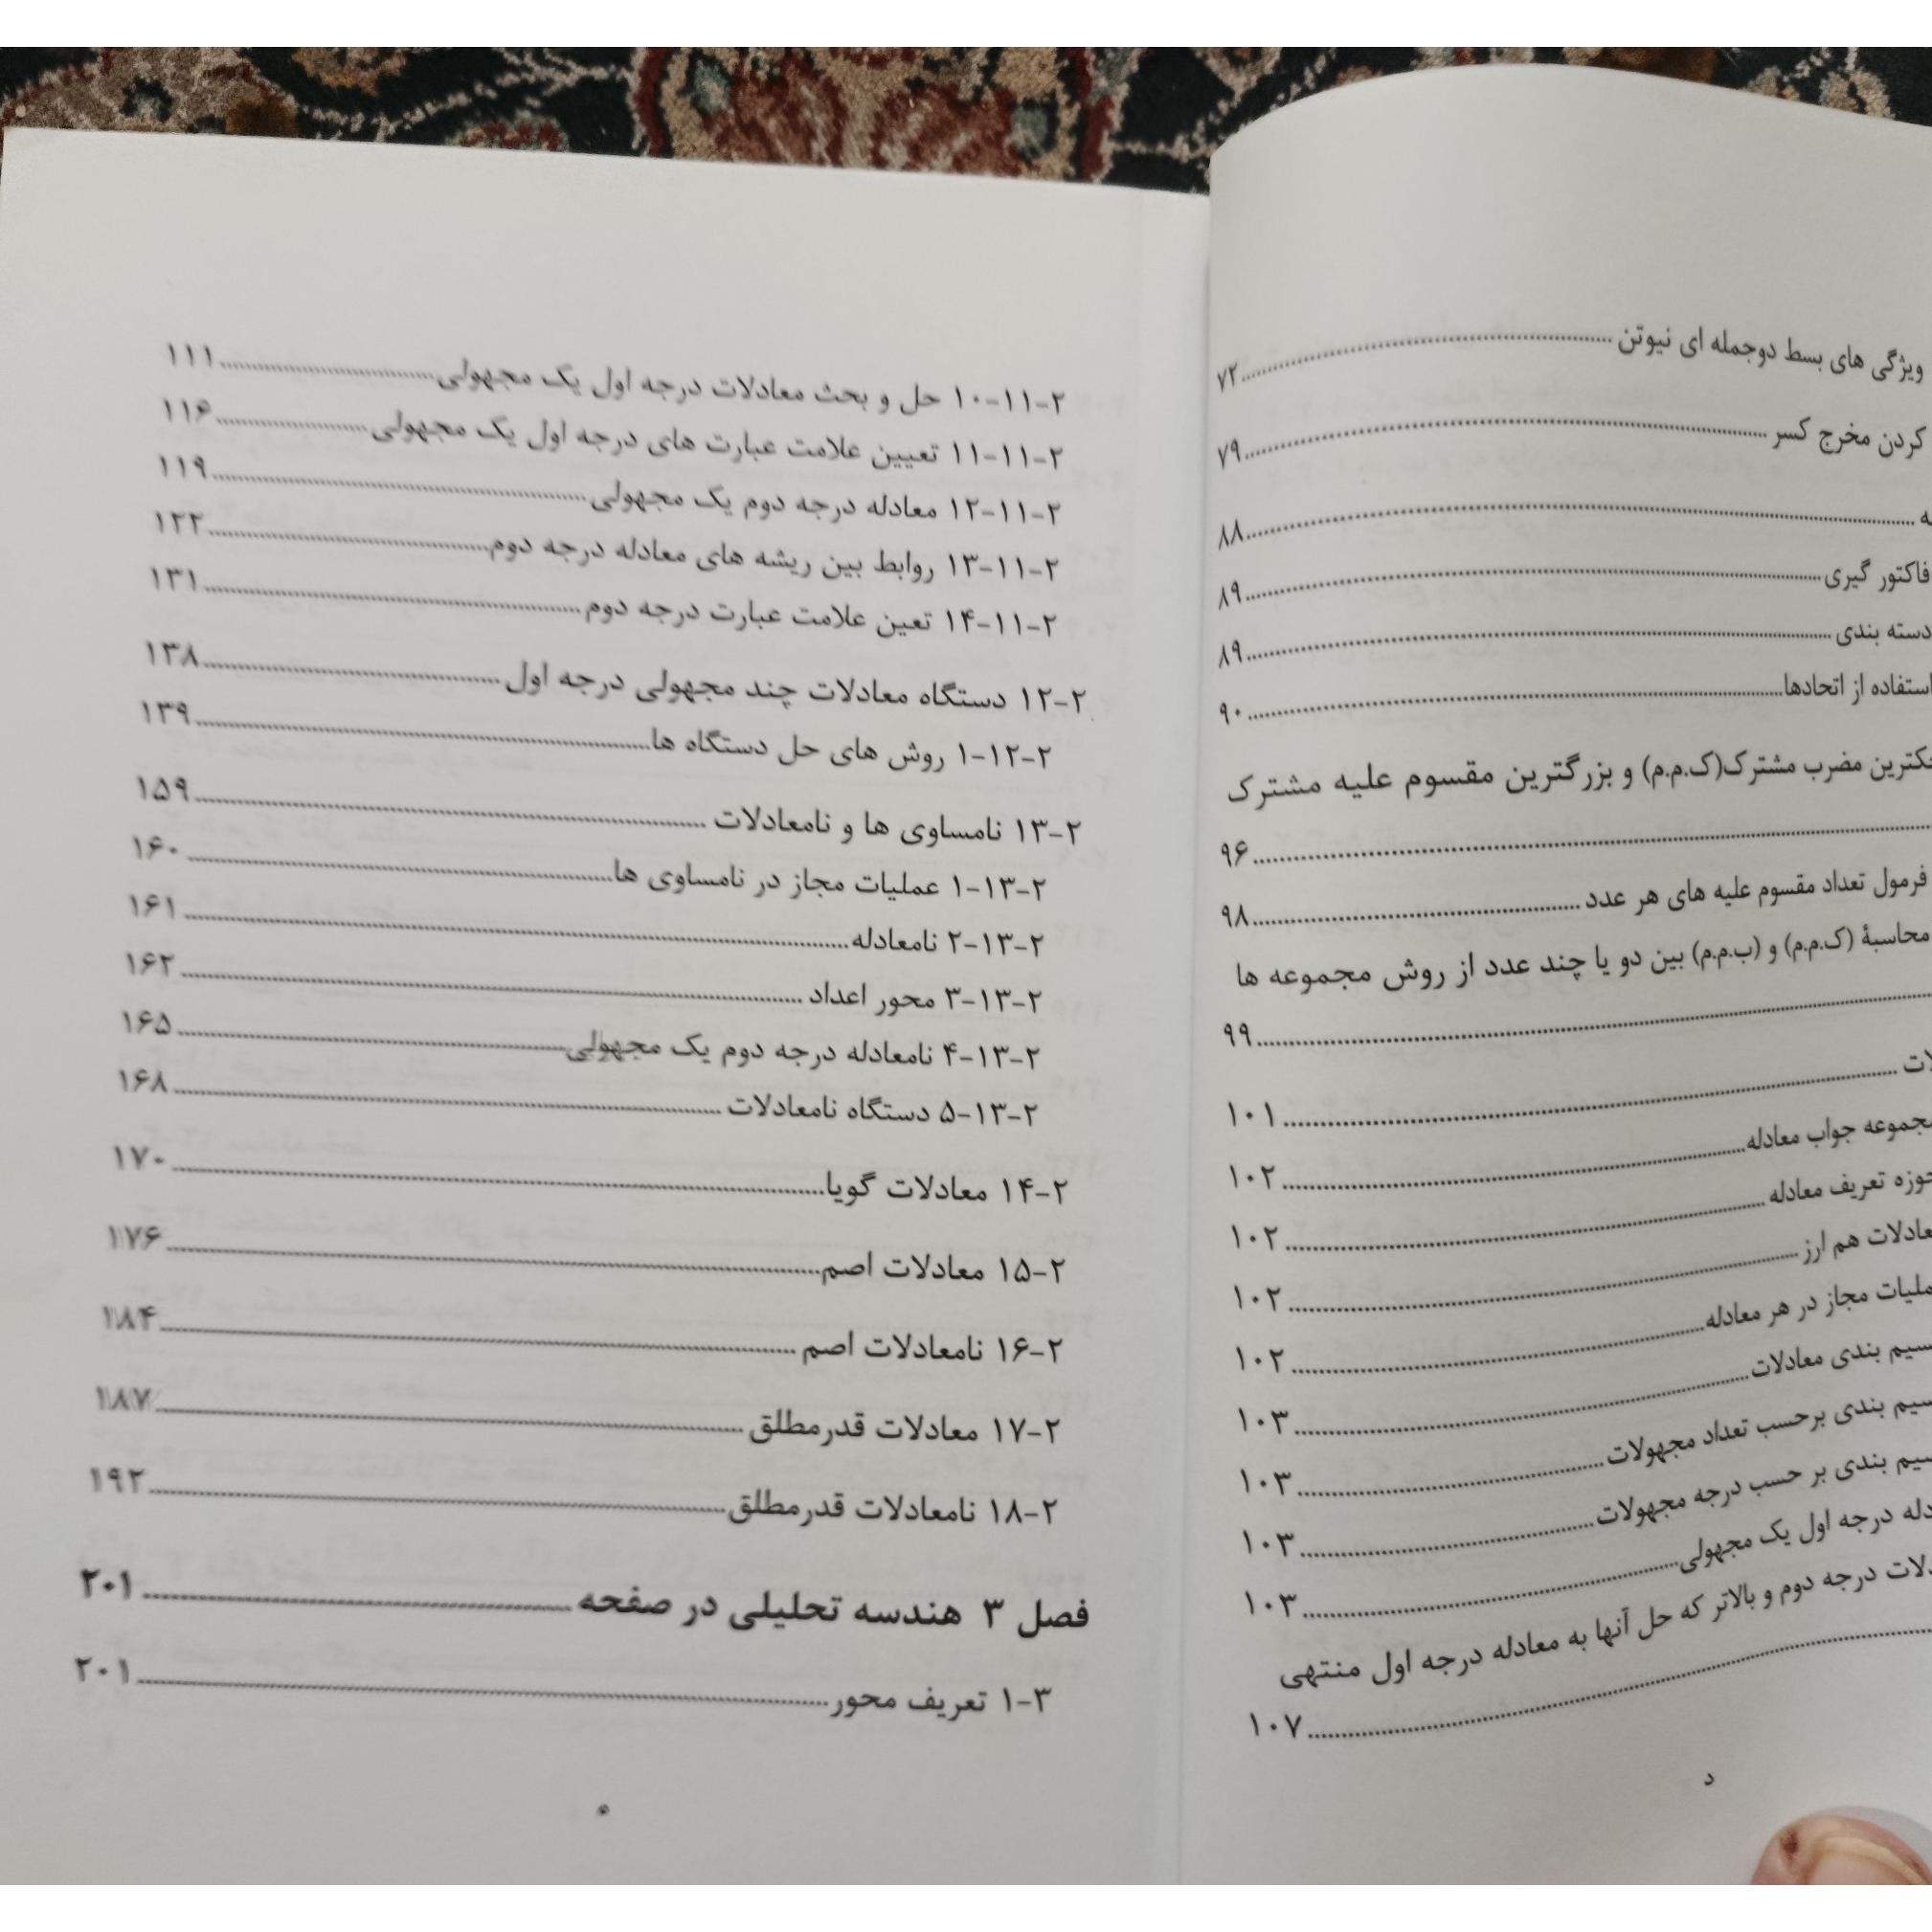 ویژگی های بسط دوجمله ای نیوتن ۷۲
کردن مخرج کسر ۷۹
۸۸
فاکتور گیری ۸۹
دسته بندی ۸۹
استفاده از اتحادها ۹۰
مضرب مشترک(ک.م.م) و بزرگترین مقسوم علیه مشترک
۹۶
فرمول تعداد مقسوم علیه های هر عدد ۹۸
محاسبهٔ (ک.م.م) و (ب.م.م) بین دو یا چند عدد از روش مجموعه ها
۹۹
۱۰۱
جواب معادله ۱۰۲
تعریف معادله ۱۰۲
هم ارز ۱۰۲
مجاز در هر معادله ۱۰۲
بندی معادلات ۱۰۳
بندی برحسب تعداد مجهولات ۱۰۳
بندی بر حسب درجه مجهولات ۱۰۳
درجه اول یک مجهولی ۱۰۳
درجه دوم و بالاتر که حل آنها به معادله درجه اول منتهی
۱۰۷
د
۲-۱۱-۱۰ حل و بحث معادلات درجه اول یک مجهولی ۱۱۱
۲-۱۱-۱۱ تعیین علامت عبارت های درجه اول یک مجهولی ۱۱۶
۲-۱۱-۱۲ معادله درجه دوم یک مجهولی ۱۱۹
۲-۱۱-۱۳ روابط بین ریشه های معادله درجه دوم ۱۲۲
۲-۱۱-۱۴ تعین علامت عبارت درجه دوم ۱۳۱
۲-۱۲ دستگاه معادلات چند مجهولی درجه اول ۱۳۸
۲-۱۲-۱ روش های حل دستگاه ها ۱۳۹
۲-۱۳ نامساوی ها و نامعادلات ۱۵۹
۲-۱۳-۱ عملیات مجاز در نامساوی ها ۱۶۰
۲-۱۳-۲ نامعادله ۱۶۱
۲-۱۳-۳ محور اعداد ۱۶۲
۲-۱۳-۴ نامعادله درجه دوم یک مجهولی ۱۶۵
۲-۱۳-۵ دستگاه نامعادلات ۱۶۸
۲-۱۴ معادلات گویا ۱۷۰
۲-۱۵ معادلات اصم ۱۷۶
۲-۱۶ نامعادلات اصم ۱۸۴
۲-۱۷ معادلات قدرمطلق ۱۸۷
۲-۱۸ نامعادلات قدرمطلق ۱۹۲
فصل ۳ هندسه تحلیلی در صفحه ۲۰۱
۳-۱ تعریف محور ۲۰۱
ه